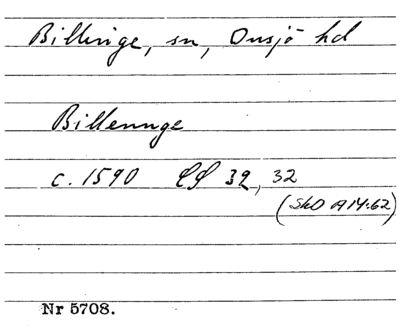 Billinge, sn, Onsjö hd
Billennge
c. 1590 LS 32, 32
(SkO A14:62)
Nr 5708.